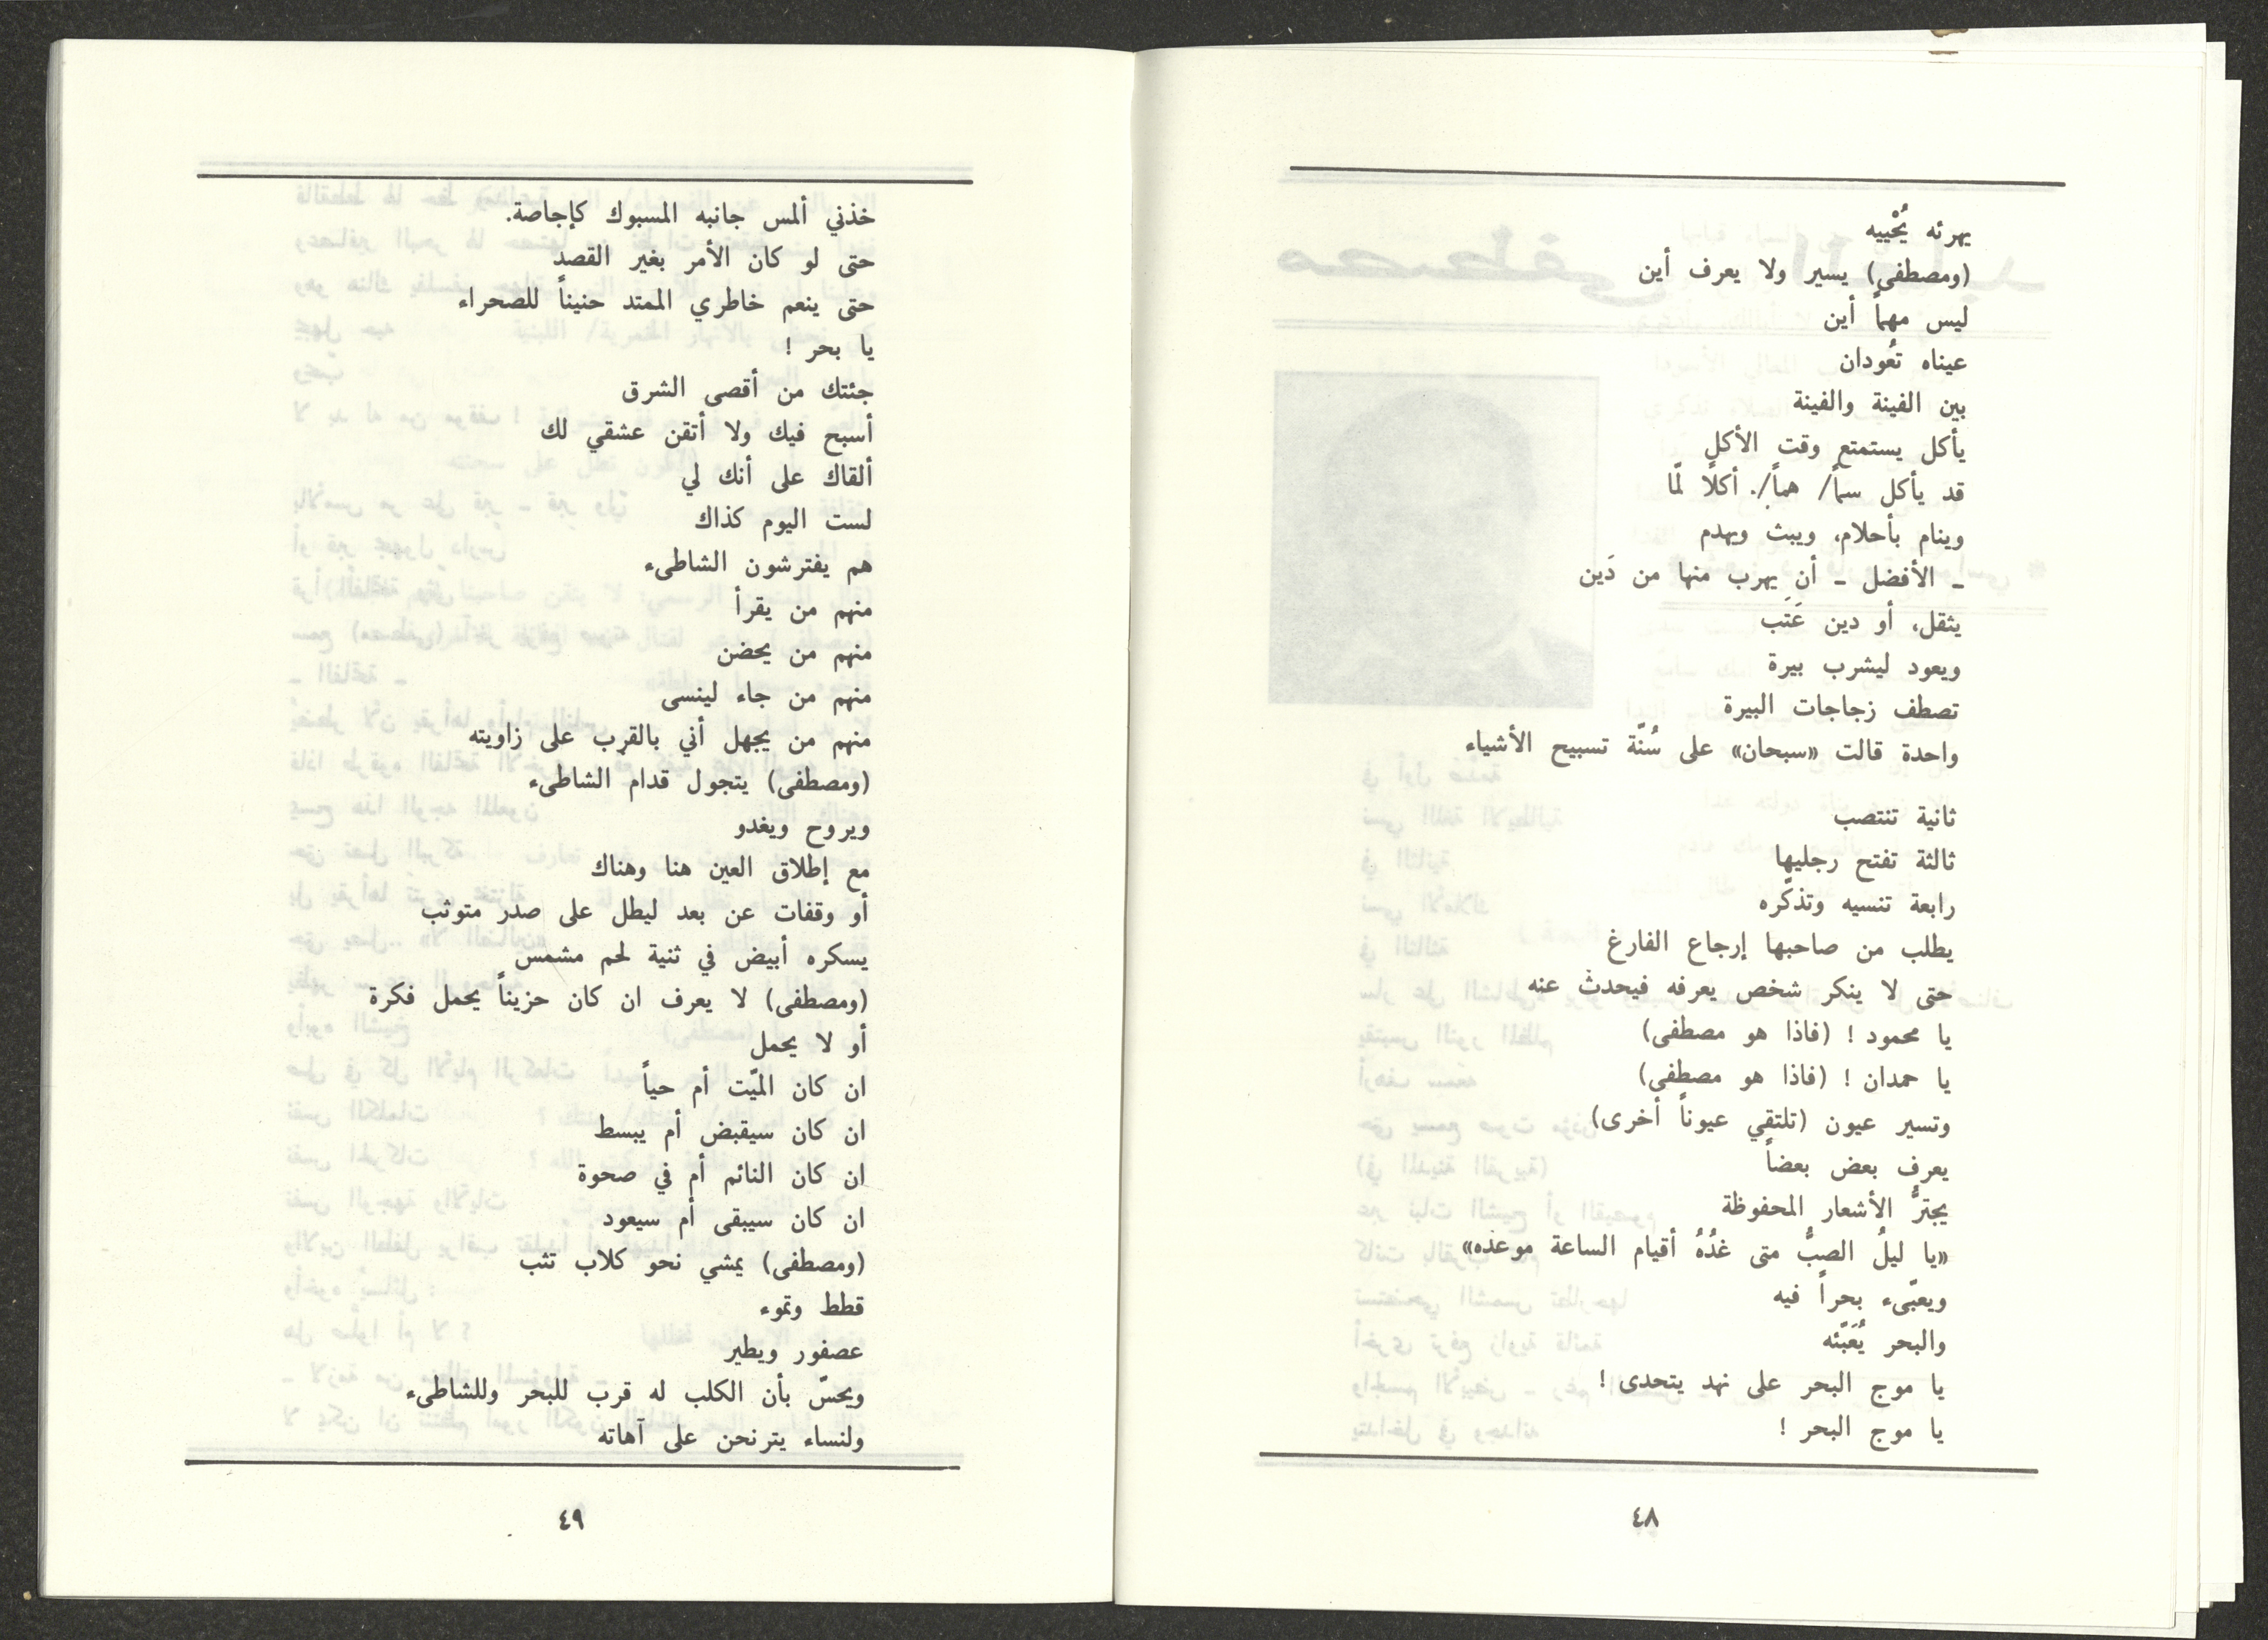 يهرئه يُحْييه
(ومصطفى) يسير ولا يعرف أين
ليس مهماً أين
عيناه تعُودان
بين الفينة والفينة
يأكل يستمتع وقت الأكل
قد يأكل سماً/ هماً/. أكلاً لمّا
وينام بأحلام، ويبث ويهدم
ـ الأفضل ـ أن يهرب منها من دَين
يثقل، أو دين عَتَب
ويعود ليشرب بيرة
تصطف زجاجات البيرة
واحدة قالت «سبحان» على سُنّة تسبيح الأشياء
ثانية تنتصب
ثالثة تفتح رجليها
رابعة تنسيه وتذكّره
يطلب من صاحبها إرجاع الفارغ
حتى لا ينكر شخص يعرفه فيحدث عنه
يا محمود ! (فاذا هو مصطفى)
يا حمدان ! (فاذا هو مصطفى)
وتسير عيون (تلتقي عيوناً أخرى)
يعرف بعض بعضاً
يجترُّ الأشعار المحفوظة
«يا ليلُ الصبُّ متى غدُهُ أقيام الساعة موعده»
ويعبّىء بحراً فيه
والبحر يُعَبّئه
يا موج البحر على نهد يتحدى !
يا موج البحر !
٤٨
خذني ألمس جانبه المسبوك كإجاصة.
حتى لو كان الأمر بغير القصد
حتى ينعم خاطري الممتد حنيناً للصحراء
يا بحر !
جئتك من أقصى الشرق
أسبح فيك ولا أتقن عشقي لك
ألقاك على أنك لي
لست اليوم كذاك
هم يفترشون الشاطىء
منهم من يقرأ
منهم من يحضن
منهم من جاء لينسى
منهم من يجهل أني بالقرب على زاويته
(ومصطفى) يتجول قدام الشاطىء
ويروح ويغدو
مع إطلاق العين هنا وهناك
أو وقفات عن بعد ليطل على صدر متوثب
يسكره أبيض في ثنية لحم مشمس
(ومصطفى) لا يعرف ان كان حزيناً يحمل فكرة
أو لا يحمل
ان كان الميّت أم حياً
ان كان سيقبض أم يبسط
ان كان النائم أم في صحوة
ان كان سيبقى أم سيعود
(ومصطفى) يمشي نحو كلاب تثب
قطط وتموء
عصفور ويطير
ويحسّ بأن الكلب له قرب للبحر وللشاطىء
ولنساء يترنحن على آهاته
٤٩